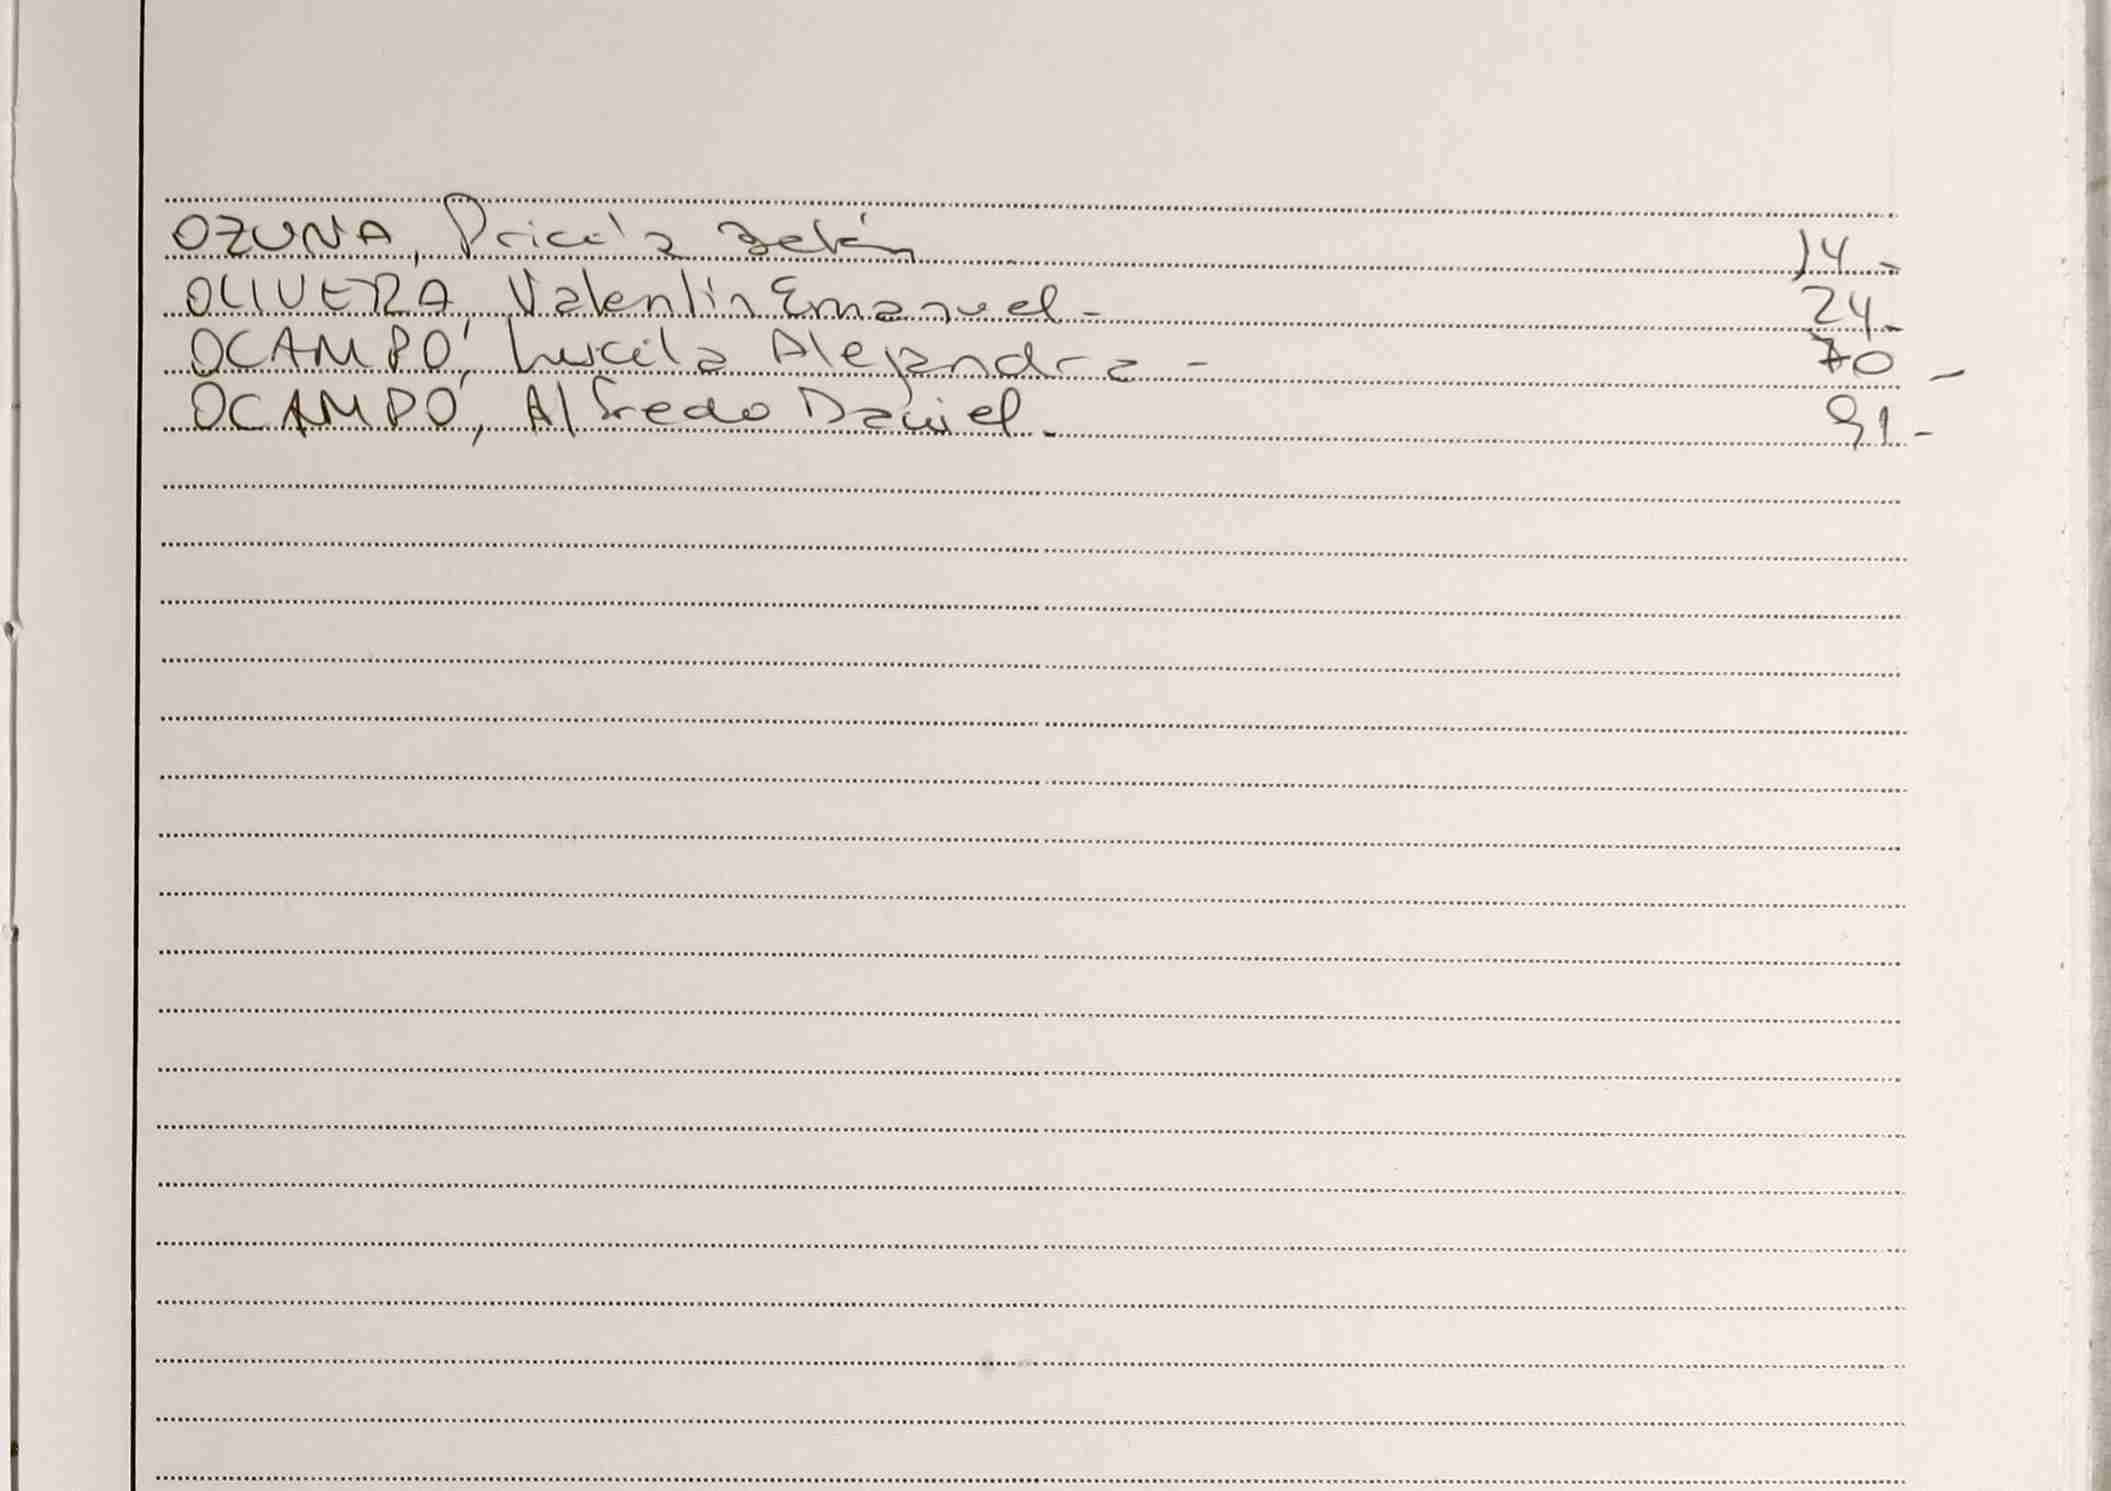 OZUNA, Pricila Belén 14-
OLIVERA, Valentín Emanuel - 24-
OCAMPO, Lucila Alejandra - 70 -
OCAMPO, Alfredo Daniel - 91 -